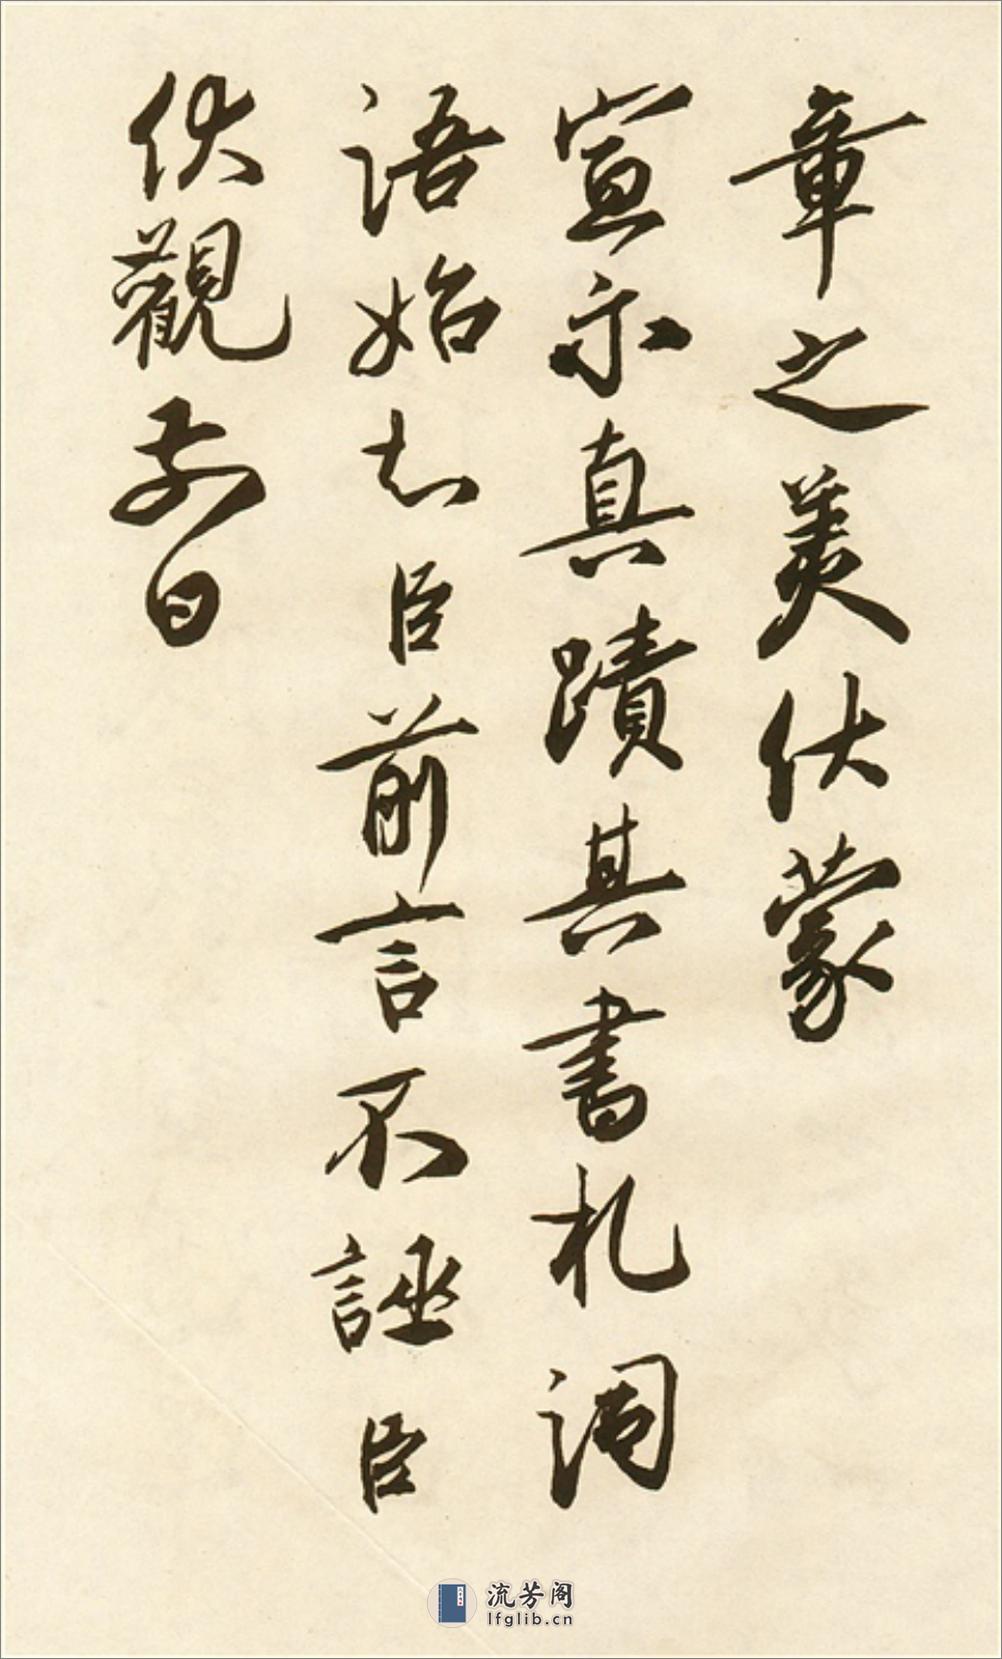 章之美伏蒙
宣示真蹟其書札詞
語始知臣前言不誣臣
伏觀前日
流芳阁
lfglib.cn